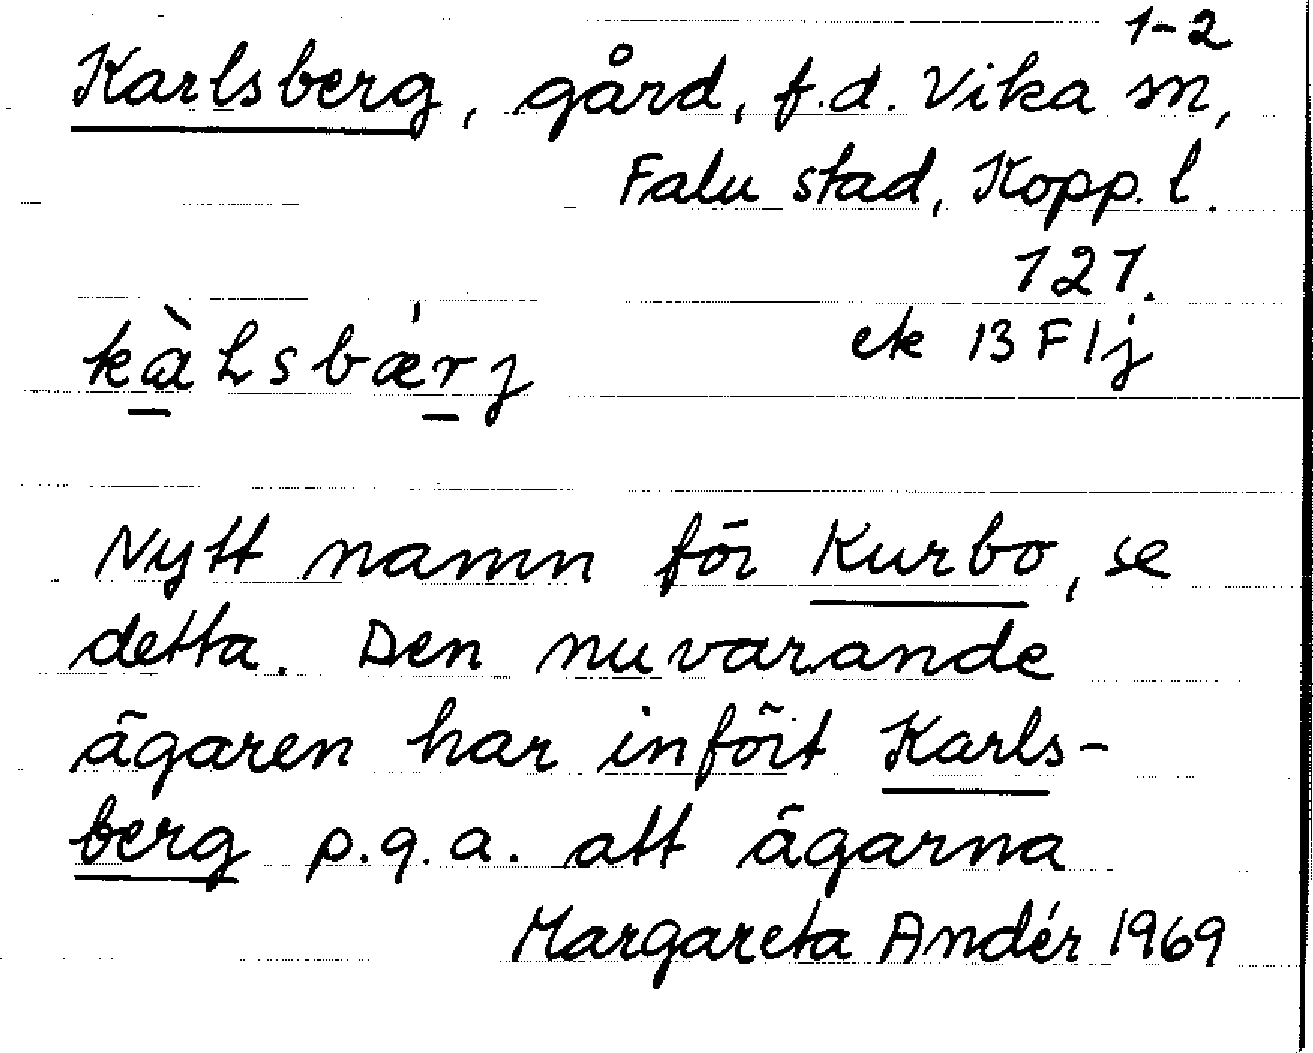 1-2
Karlsberg, gård, f.d. Vika sn,
Falu stad, Kopp. l.
121.
ek 13 F 1 j
Nytt namn för Kurbo, se
detta. Den nuvarande
ägaren har infört Karls-
berg p.g.a. att ägarna
Margareta Andér 1969